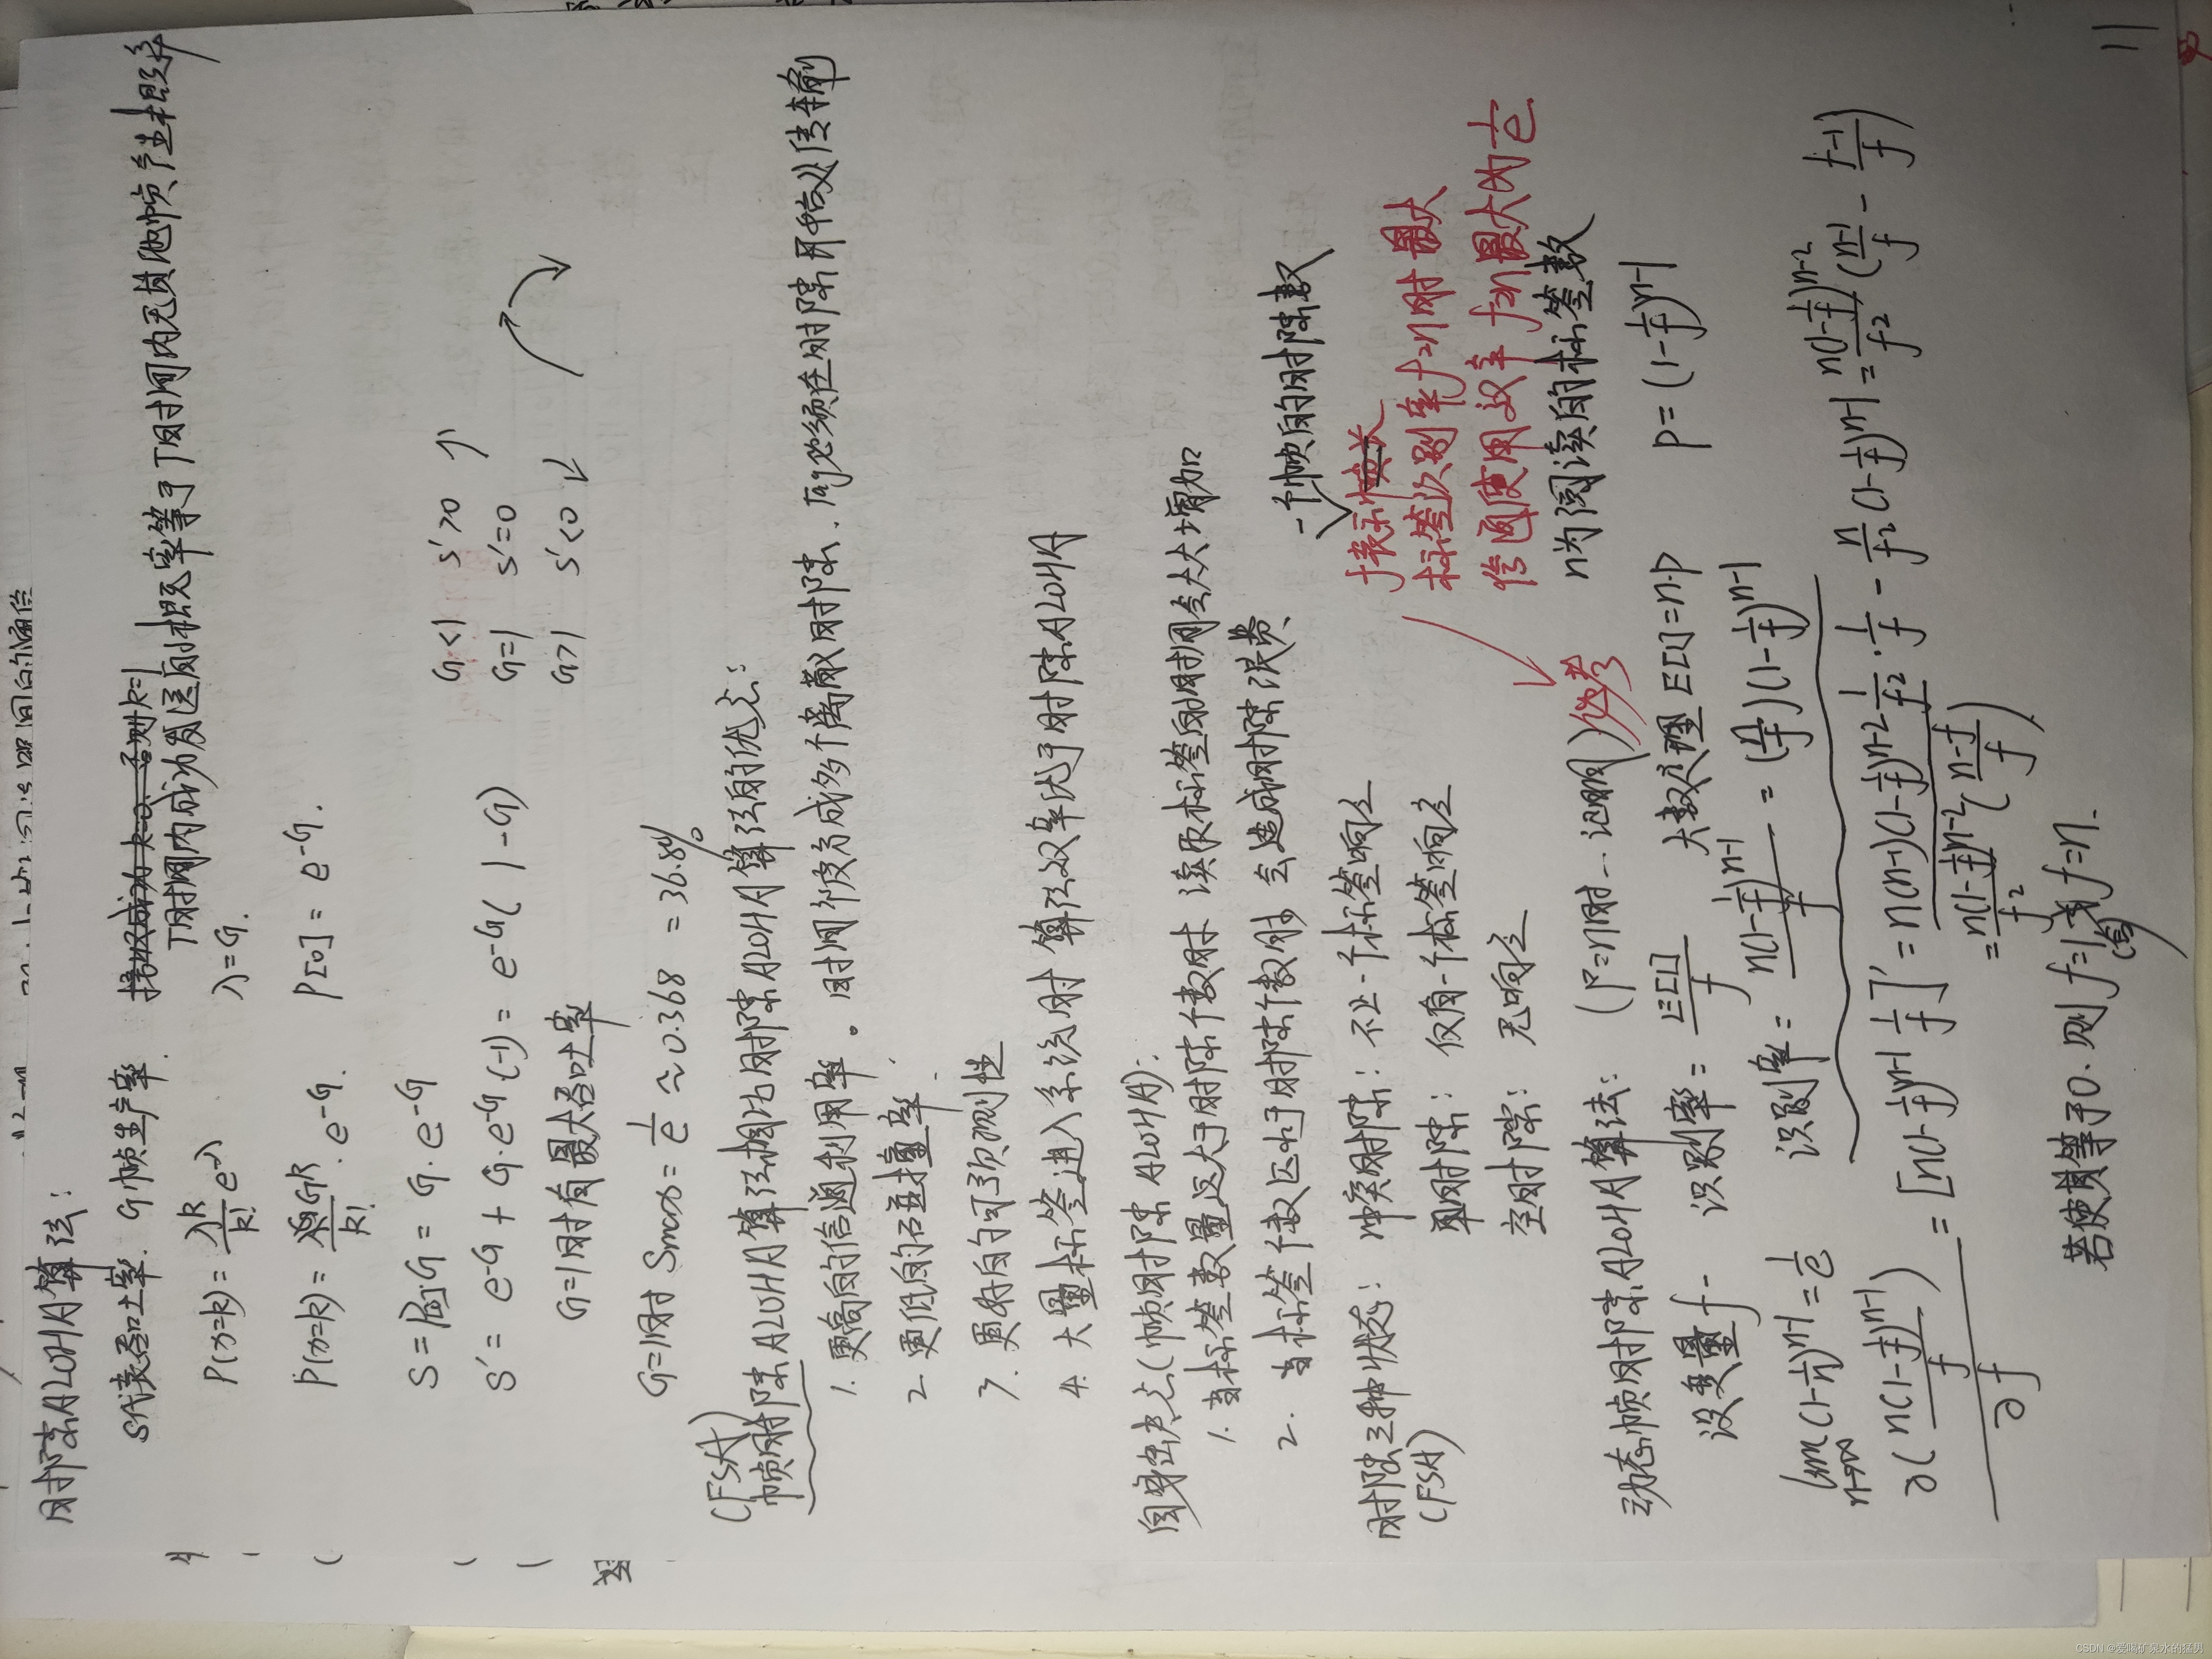 时隙ALOHA算法:
S代表吞吐率. G帧生产率. 接收成功 k=0. 否则k=1
T时间内成功发送的概率等于T时间内无其他帧产生概率
P(x=k) = λ^k/k! e^-λ λ=G.
P(x=k) = G^k/k! · e^-G. P[0] = e^-G.
S = P[0]G = G · e^-G
G<1 S'>0 ↑
S' = e^-G + G·e^-G·(-1) = e^-G( 1-G) G=1 S'=0
G>1 S'<0 ↓
G=1时有最大吞吐率
G=1时 Smax = 1/e ≈ 0.368 = 36.8%
(FSA)
帧时隙ALOHA算法相比时隙ALOHA算法的优点:
1. 更高的信道利用率。时间维度分成多个离散时隙.而必须在时隙开始处传输
2. 更低的碰撞率.
3. 更好的可预测性
4. 大量标签进入系统时 算法效率优于时隙ALOHA
自身缺点(帧时隙ALOHA):
1. 当标签数量远大于时隙个数时 读取标签的时间会大大增加
2. 当标签个数远小于时隙个数时 会造成时隙浪费
一个帧的时隙数
时隙三种状态: 冲突时隙: 不止一个标签响应
(FSA) 单时隙: 仅有一个标签响应
空时隙: 无响应
f表示帧长
标签识别率f=n时最大
信道使用效率 f=n最大为1/e
动态帧时隙ALOHA算法: (F=n时...证明) 必考 n为阅读的标签数
设变量f - 识别率 = E[1]/f 大数定理 E[1]=n·p p = (1-1/f)^n-1
lim n→∞ (1-1/n)^n-1 = 1/e 识别率 = n(1-1/f)^n-1/f = (n/f)(1-1/f)^n-1
∂(n(1-1/f)^n-1/f)/∂f = [n(1-1/f)^n-1 1/f]' = n(n-1)(1-1/f)^n-2 1/f2 · 1/f - n/f2 (1-1/f)^n-1 = n(1-1/f)^n-2/f2 (n-1/f - f-1/f)
= n(1-1/f)^n-2/f2 (n-f/f)
若使其等于0. 则f=1或f=n.
(舍)
11
CSDN @爱喝矿泉水的猛男